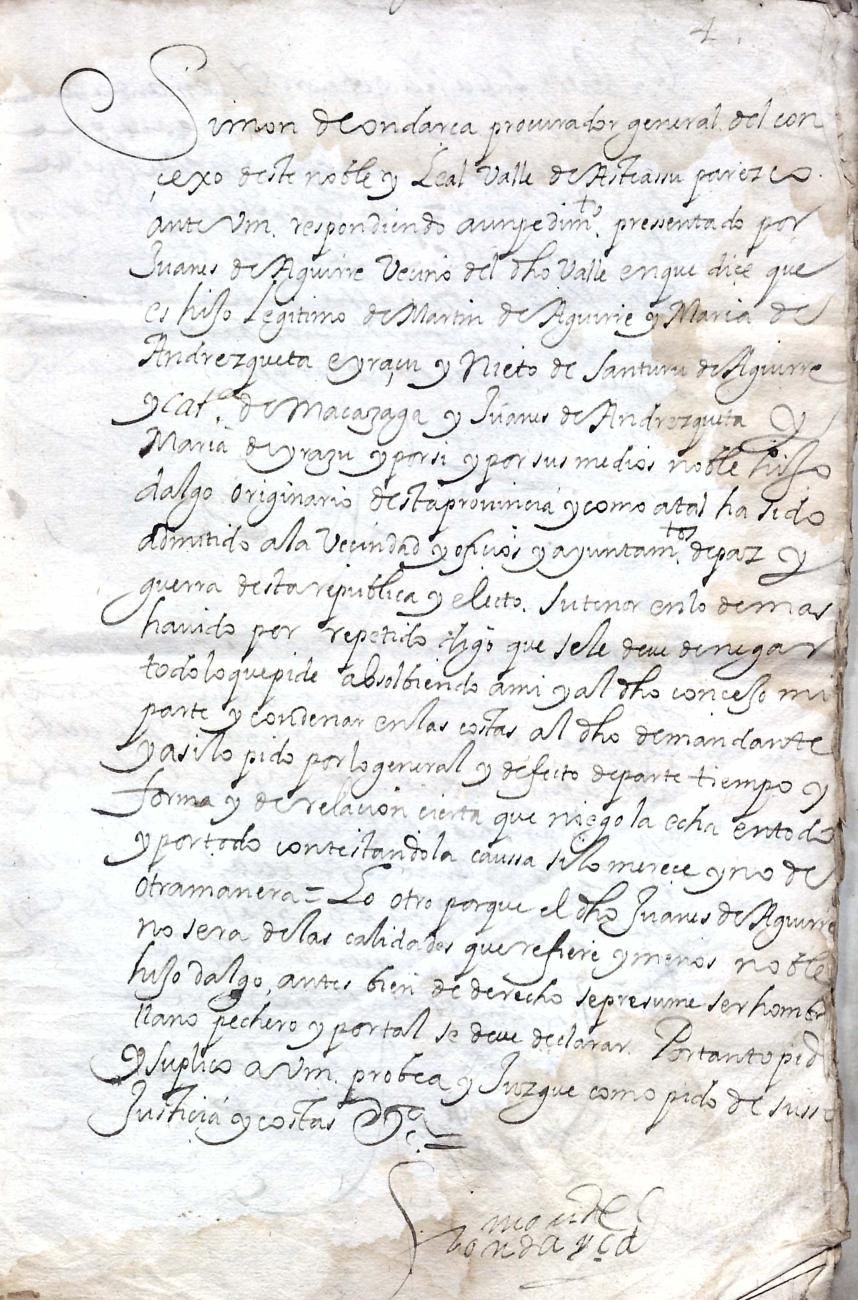 4
Simon de Ondarça procurador general del con
çexo deste noble y Leal Valle de Asteassu parezco
ante Vm. respondiendo a un pedimto. pressentado por
Juanes de Aguirre Vecino del dho Valle en que diçe que
es hijo Legitimo de Martin de Aguirre y Maria de
Andrezqueta e yraçu y Nieto de Santuru de Aguirre
y Cata. de Macazaga y Juanes de Andrezqueta y
Maria de yrazu y por si y por sus medios noble hijo
dalgo originario desta provincia y como a tal ha sido
admitido a la Vecindad y ofiçios y ayuntamtos. de paz y
guerra desta republica y electo. Su tenor en lo demas
havido por repetido digo que se le deve denegar
todo lo que pide absolbiendo a mi y al dho concejo mi
parte y condenar en las costas al dho demandante
y asi lo pido por lo general y defecto de parte tiempo y
forma y de relacion cierta que niego la echa en todo
y por todo contestando la caussa si lo mereçe y no de
otra manera = Lo otro porque el dho Juanes de Aguirre
no sera de las calidades que refiere y menos noble
hijo dalgo, antes bien de derecho se presume ser hombr
llano pechero y por tal se deve declarar. Por tanto pid
y suplico a Vm. probea y Juzgue como pido de susso
Justicia y costas &ça =
Simon de
Ondarça